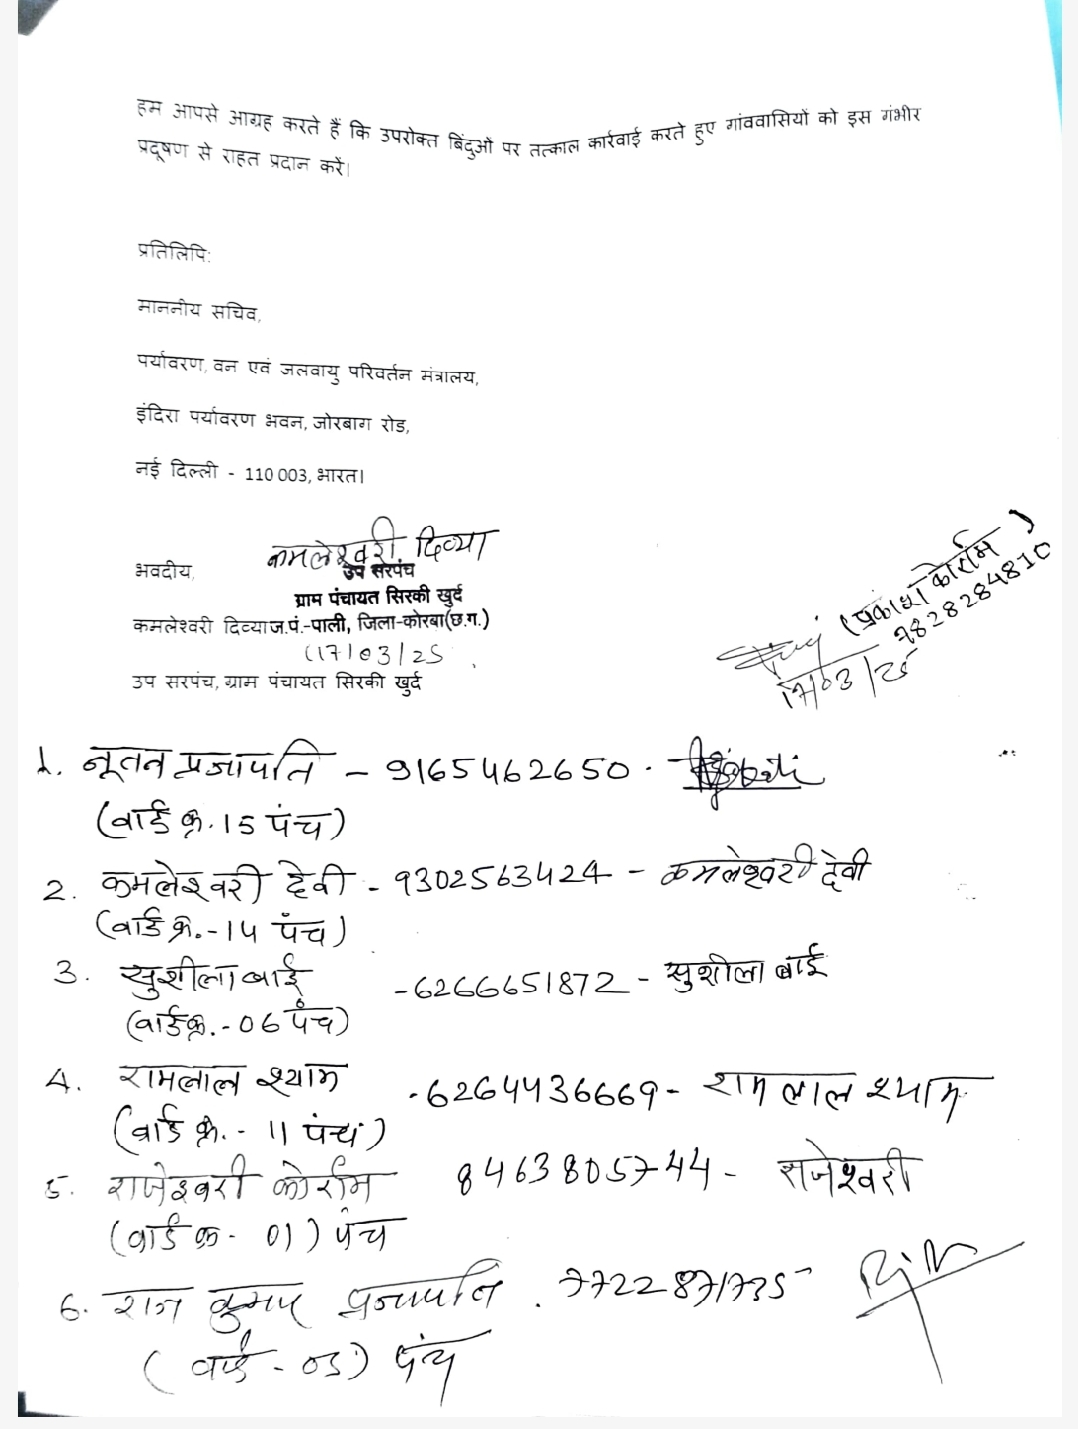 हम आपसे आग्रह करते हैं कि उपरोक्त बिंदुओं पर तत्काल कार्रवाई करते हुए गांववासियों को इस गंभीर
प्रदूषण से राहत प्रदान करें।
प्रतिलिपि:
माननीय सचिव,
पर्यावरण, वन एवं जलवायु परिवर्तन मंत्रालय,
इंदिरा पर्यावरण भवन, जोरबाग रोड,
नई दिल्ली - 110 003, भारत।
कमलेश्वरी दिव्या
भवदीय,
उप सरपंच
ग्राम पंचायत सिरकी खुर्द
कमलेश्वरी दिव्या ज.पं.-पाली, जिला-कोरबा(छ.ग.)
17/03/25
उप सरपंच, ग्राम पंचायत सिरकी खुर्द
(प्रकाश कोर्राम)
7828284810
17/03/25
1. नूतन प्रजापति - 9165462650.
(वार्ड क्र. 15 पंच)
2. कमलेश्वरी देवी - 9302563424 - कमलेश्वरी देवी
(वार्ड क्र.-14 पंच)
3. सुशीला बाई - 6266651872 - सुशीला बाई
(वार्ड क्र.-06 पंच)
4. रामलाल श्याम - 6264436669 - राम लाल श्याम
(वार्ड क्र. - 11 पंच)
5. राजेश्वरी कोर्राम 8463805744 - राजेश्वरी
(वार्ड क्र - 01) पंच
6. राज कुमार प्रजापति . 7722871735 -
(वार्ड - 03) पंच